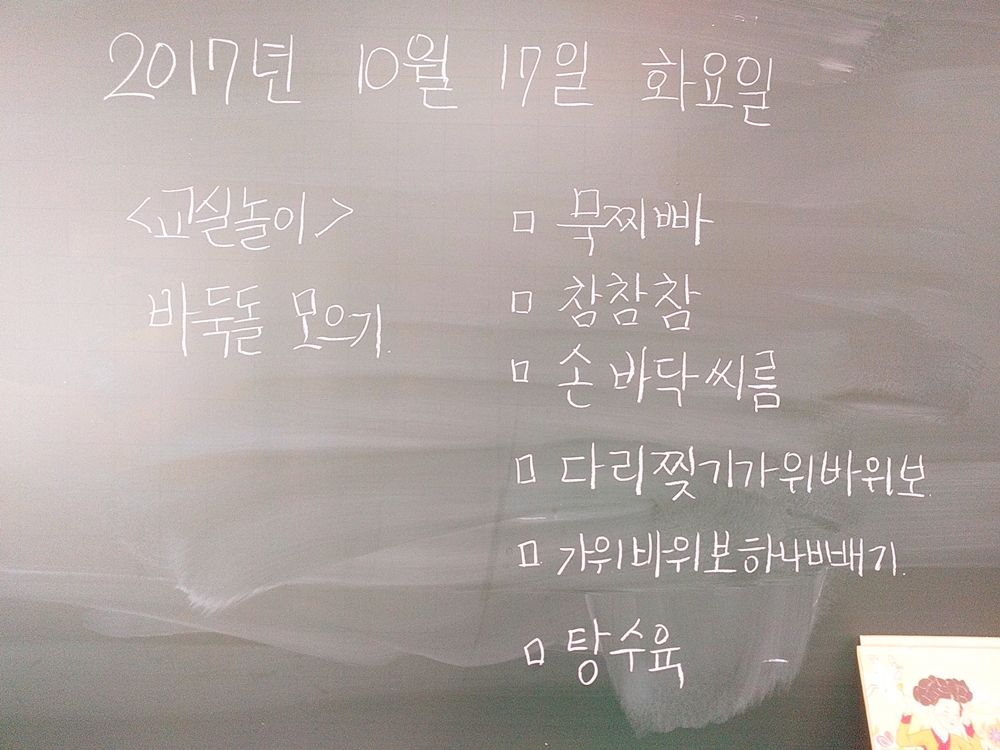 2017년 10월 17일 화요일
<교실놀이>
바둑돌 모으기.
□ 묵찌빠
□ 참참참
□ 손바닥씨름
□ 다리찢기가위바위보.
□ 가위바위보하나빼기.
□ 탕수육